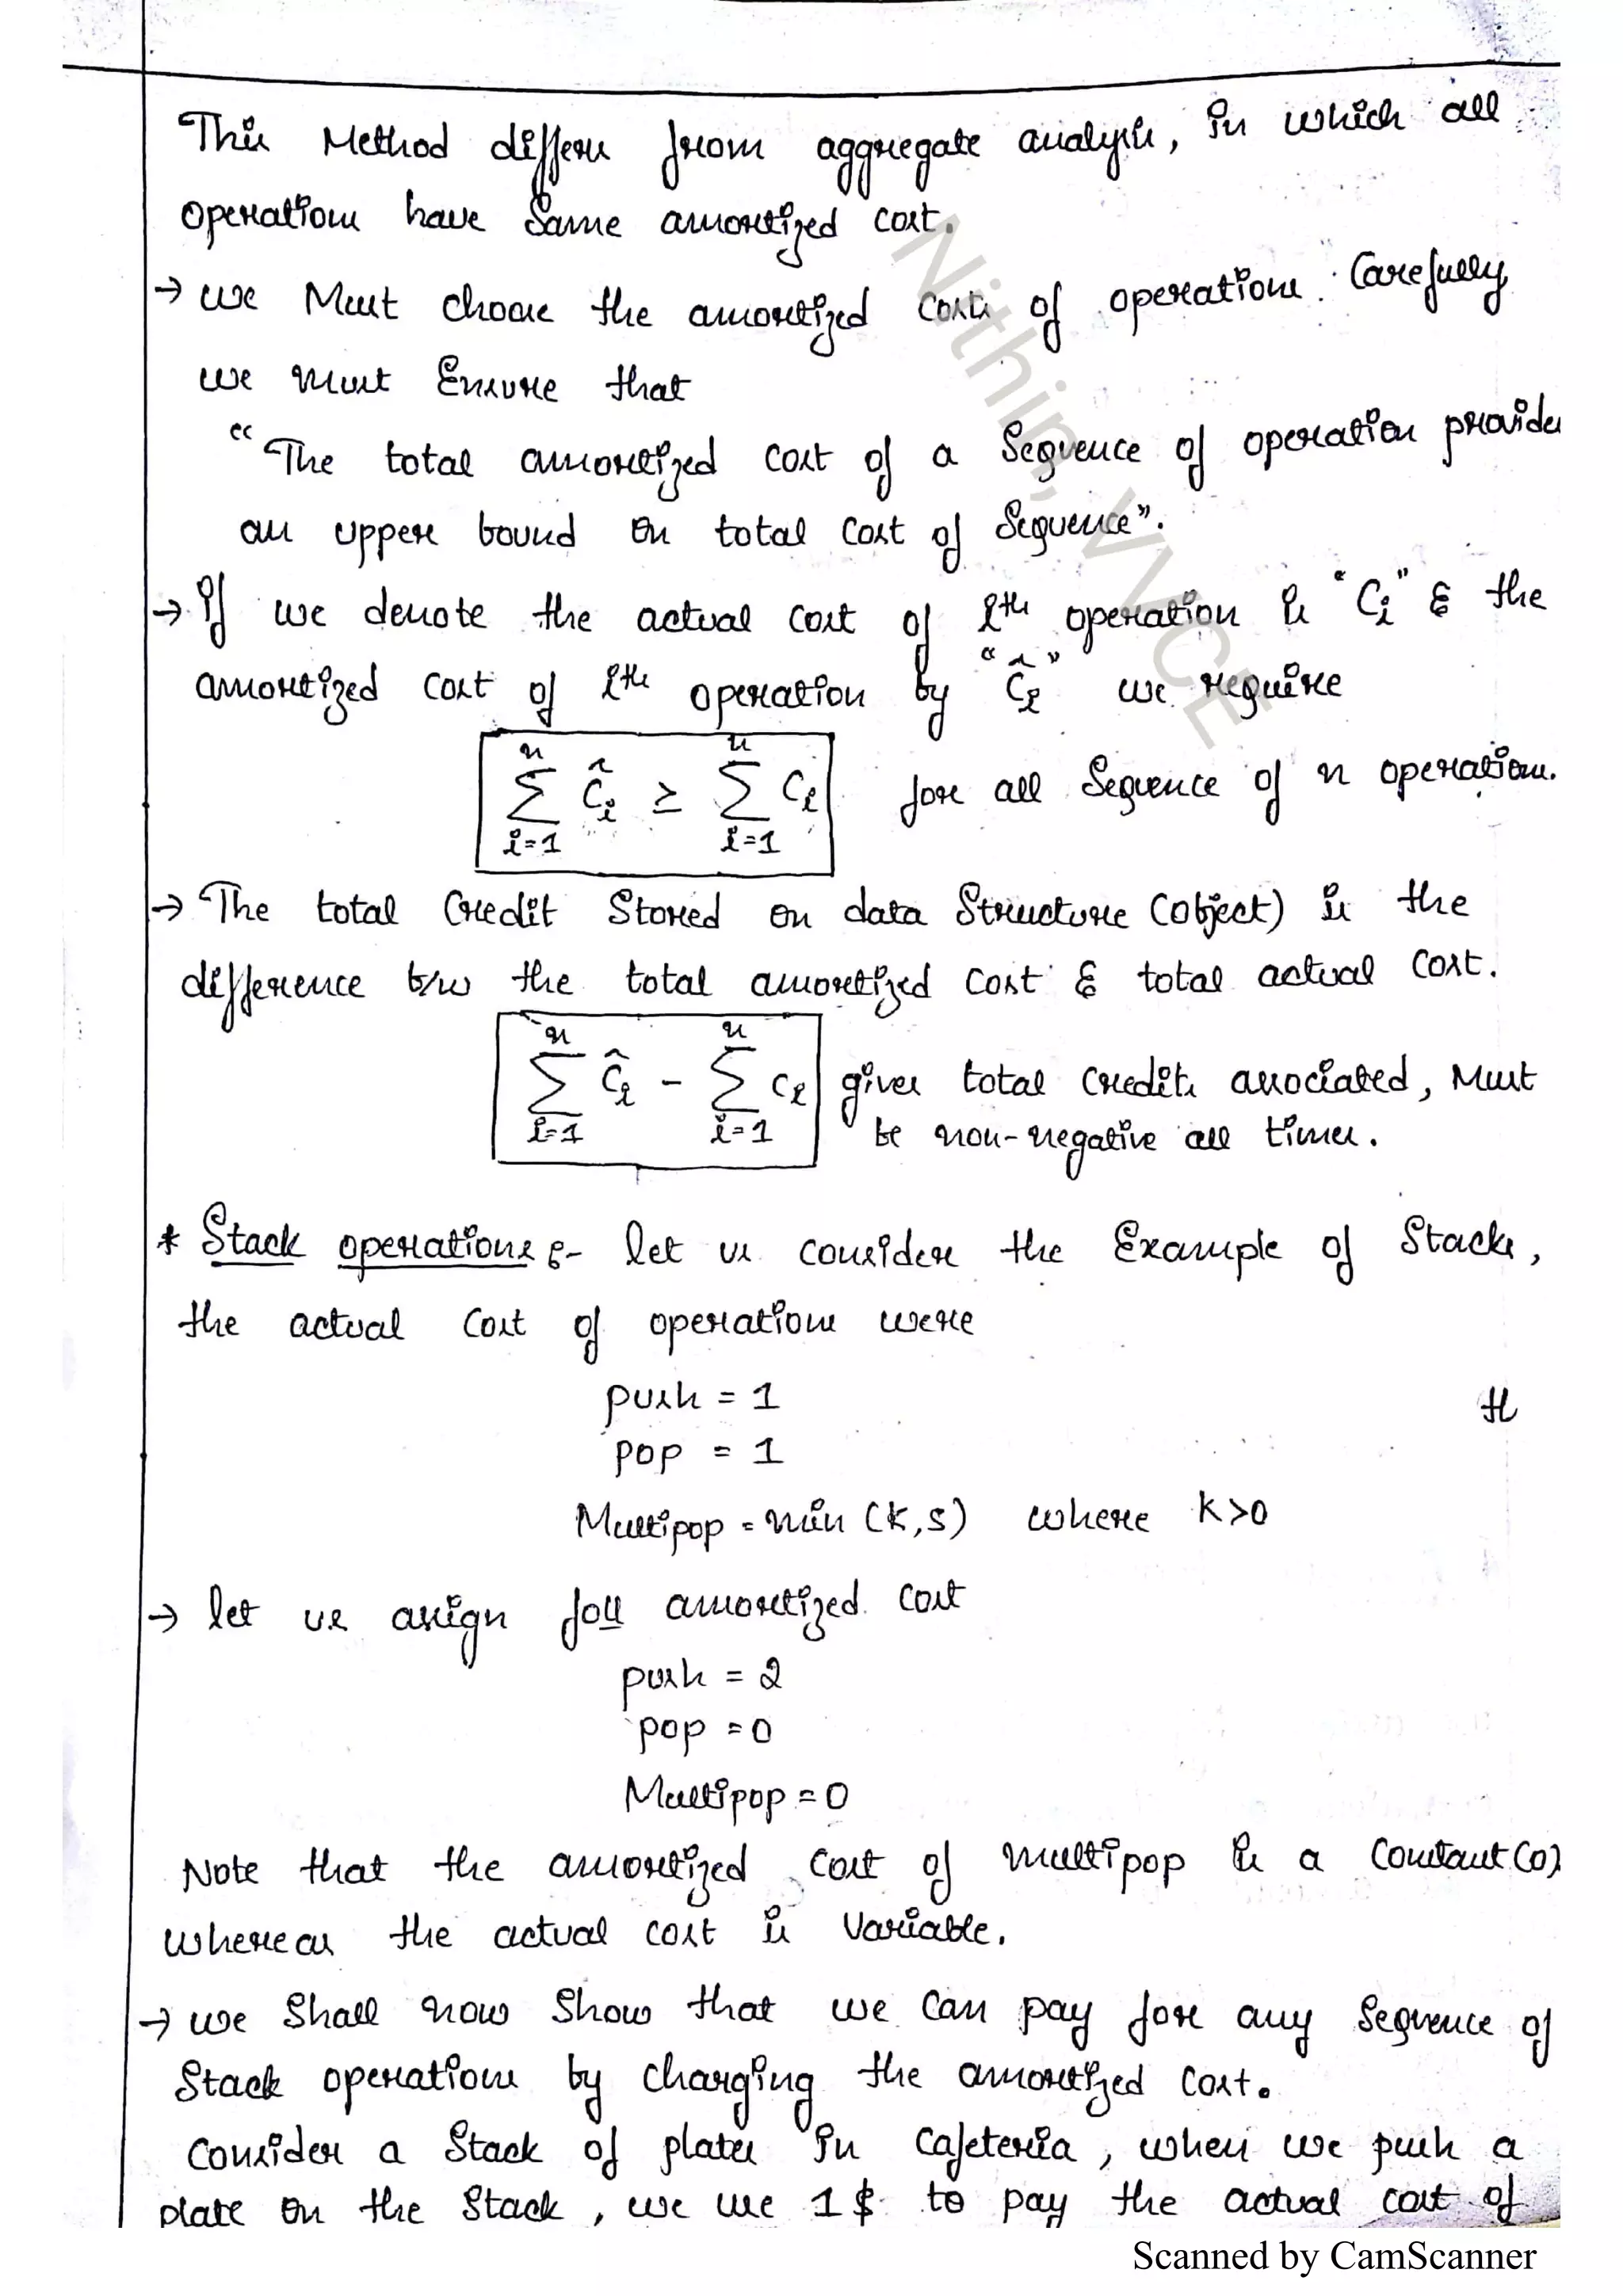 This Method differs from aggregate analysis, in which all
operations have same amortized cost.
→ we Must choose the amortized costs of operations. Carefully
we must Ensure that
“The total amortized cost of a Sequence of operation provides
an upper bound on total cost of Sequence”.
→ If we denote the actual cost of ith operation is “Ci” & the
amortized cost of ith operation by “Ĉi” we require
n∑i=1 Ĉi ≥ n∑i=1 Ci for all Sequence of n operations.
→ The total Credit Stored on data Structure (object) is the
difference b/w the total amortized cost & total actual cost.
n∑i=1 Ĉi - n∑i=1 ci gives total credits associated, Must
be non-negative all times.
* Stack operations :- let us consider the Example of Stacks,
the actual cost of operations were
push = 1
pop = 1
Multipop = min (k,s) where k>0
→ let us assign foll amortized cost
push = 2
pop = 0
Multipop = 0
Note that the amortized cost of multipop is a constant (0)
whereas the actual cost is variable.
→ we Shall now Show that we can pay for any Sequence of
Stack operations by charging the amortized cost.
Consider a Stack of plates in cafeteria, when we push a
plate on the Stack, we use 1$ to pay the actual cost of
Nithin, VVCE
Scanned by CamScanner